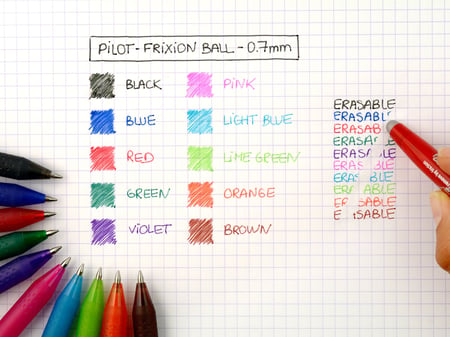 PILOT - FRIXION BALL - 0.7mm
BLACK
BLUE
RED
GREEN
VIOLET
PINK
LIGHT BLUE
LIME GREEN
ORANGE
BROWN
ERASABLE
ERASABL
ERASAB
ERASABLE
ERASABLE
ERASABLE
ERASABLE
ER ABLE
ER SABLE
E SABLE